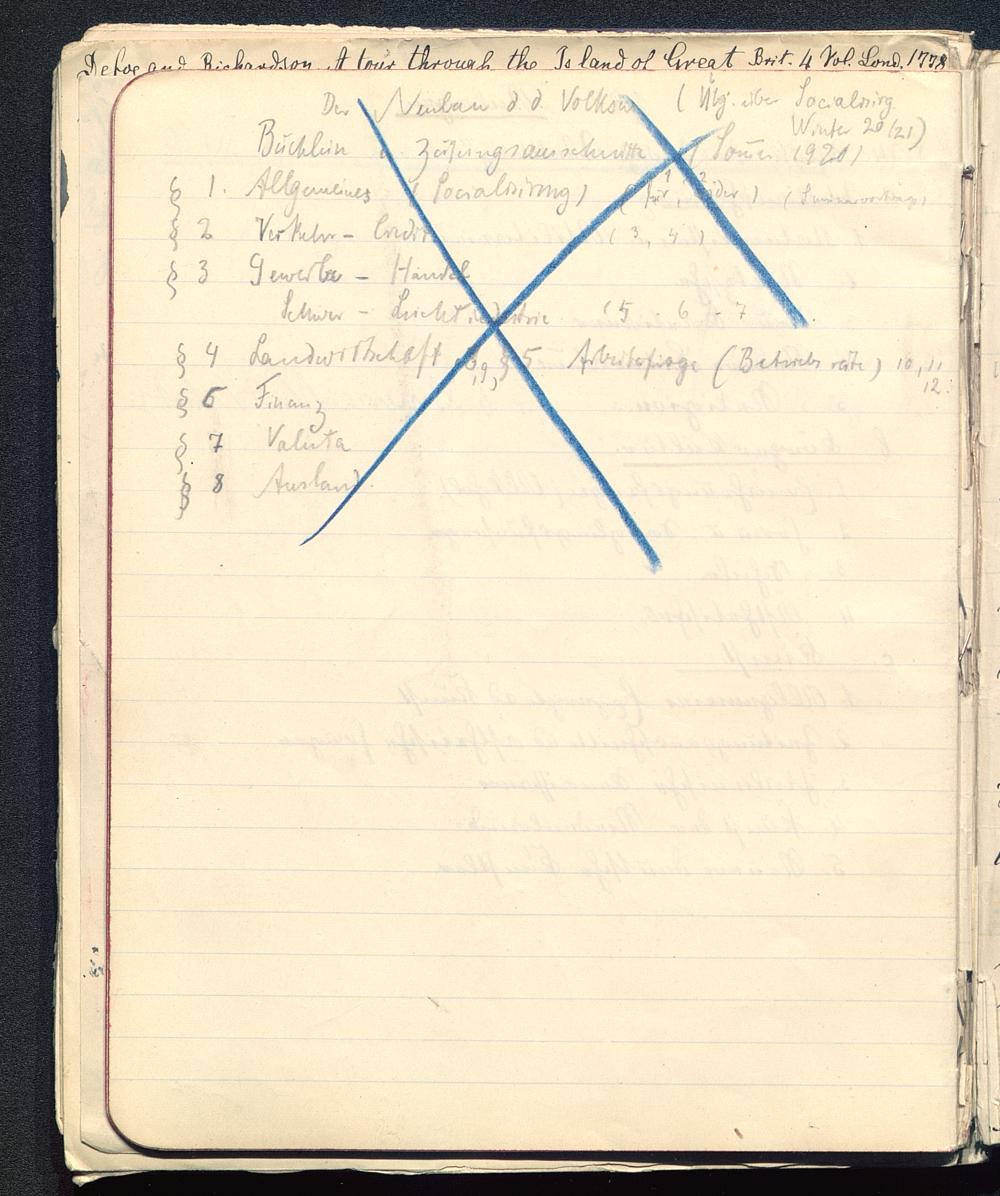 Defoe and Richardson A tour through the Island of Great Brit. 4 Vol. Lond. 1778
Der Neubau d. d. Volksw (Übg. über Socialisirg.
Winter 20/21)
Büchlein u Zeitungsausschnitte (Somer 1920)
§ 1. Allgemeines (Socialisirung) (für 1, wider 2) (Seminarvorträge)
§ 2 Verkehr – Credit (3, 4)
§ 3 Gewerbe – Handel
Schwer – Leichtindustrie (5 6 - 7
§ 4 Landwirtschaft 8,9, § 5 Arbeitsfrage (Betriebsräte) 10, 11
12.
§ 6 Finanz
§ 7 Valuta
§ 8 Ausland.